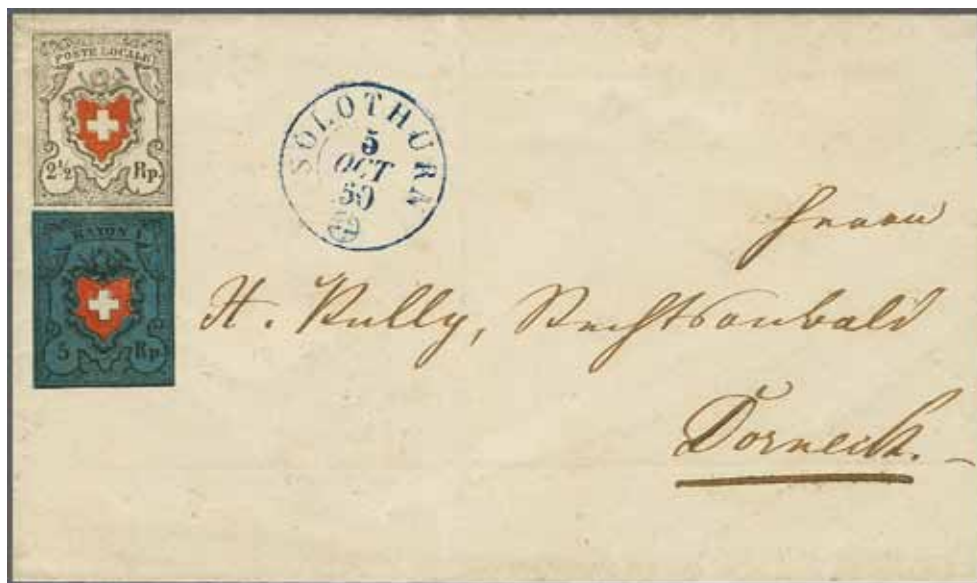 POSTE LOCALE
2½ Rp.
RAYON I
5 Rp.
SOLOTHURN
5
OCT
50
Herrn
H. Pully, Rechtsanwald
Dorneck.